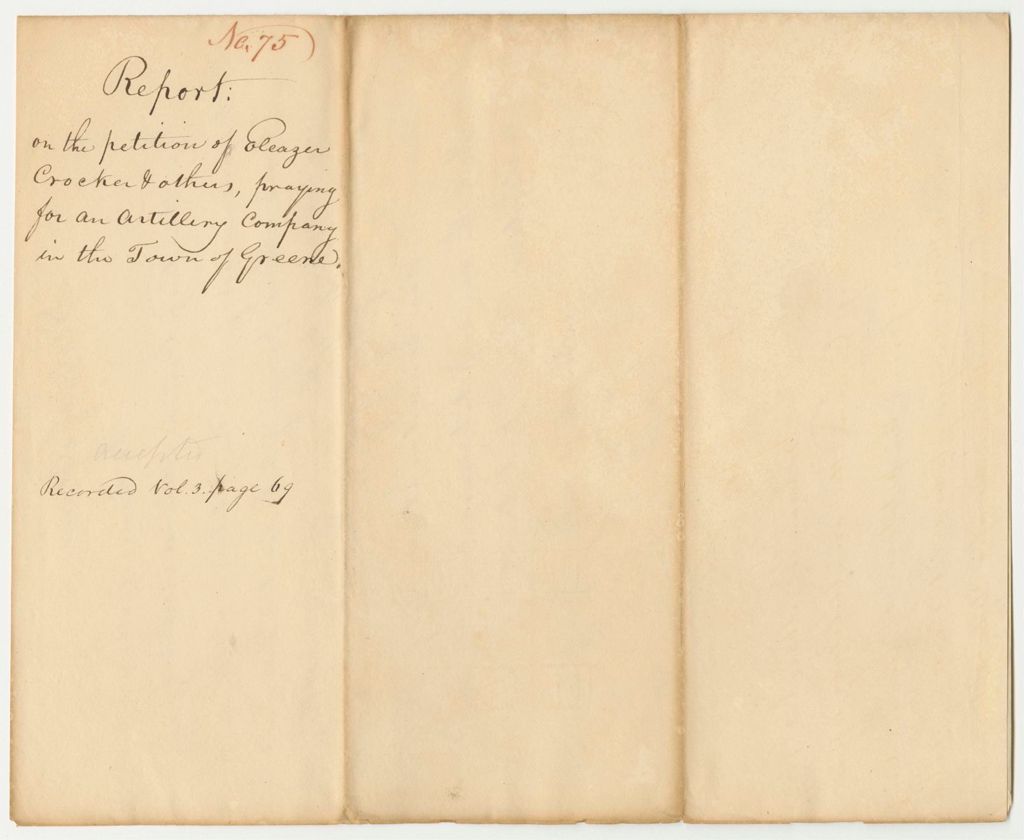 No. 75)
Report:
on the petition of Eleazer
Crocker & others, praying
for an Artillery Company
in the Town of Greene.
accepted
Recorded Vol. 3. page 69